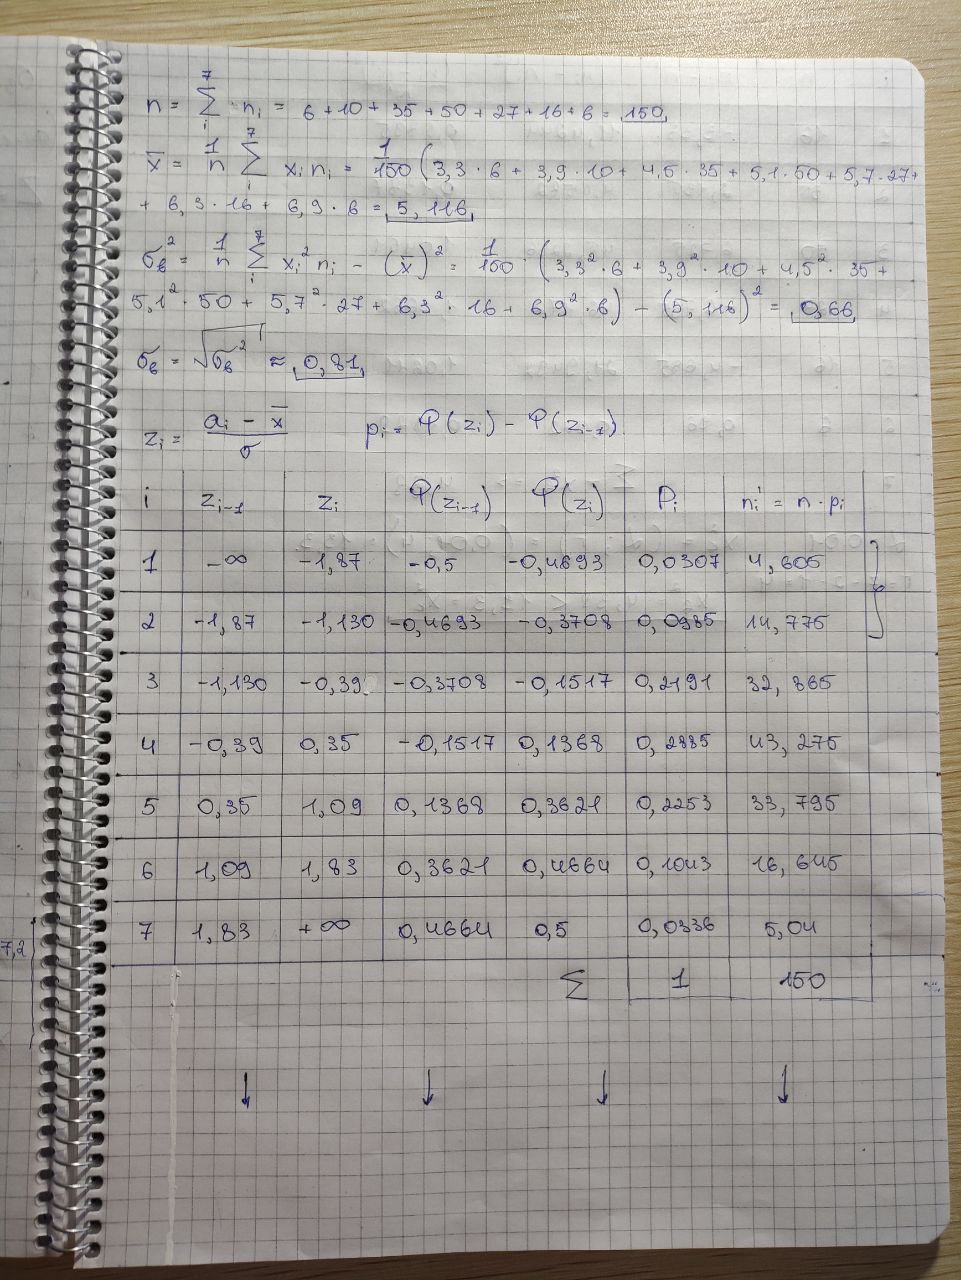 n = Σ⁷ᵢ nᵢ = 6 + 10 + 35 + 50 + 27 + 16 + 6 = 150
x̄ = 1/n Σ⁷ᵢ xᵢ nᵢ = 1/150 (3,3 · 6 + 3,9 · 10 + 4,5 · 35 + 5,1 · 50 + 5,7 · 27 +
+ 6,3 · 16 + 6,9 · 6 = 5,116
σв² = 1/n Σ⁷ᵢ xᵢ² nᵢ - (x̄)² = 1/150 · (3,3² · 6 + 3,9² · 10 + 4,5² · 35 +
5,1² · 50 + 5,7² · 27 + 6,3² · 16 + 6,9² · 6) - (5,116)² = 0,66
σв = √σв² ≈ 0,81
zᵢ = (aᵢ - x̄)/σ pᵢ = Φ(zᵢ) - Φ(zᵢ₋₁)
i zᵢ₋₁ zᵢ Φ(zᵢ₋₁) Φ(zᵢ) Pᵢ nᵢ' = n · pᵢ
1 -∞ -1,87 -0,5 -0,4693 0,0307 4,605
2 -1,87 -1,130 -0,4693 -0,3708 0,0985 14,775
3 -1,130 -0,39 -0,3708 -0,1517 0,2191 32,865
4 -0,39 0,35 -0,1517 0,1368 0,2885 43,275
5 0,35 1,09 0,1368 0,3621 0,2253 33,795
6 1,09 1,83 0,3621 0,4664 0,1043 16,645
7 1,83 +∞ 0,4664 0,5 0,0336 5,04
Σ 1 150
7,2